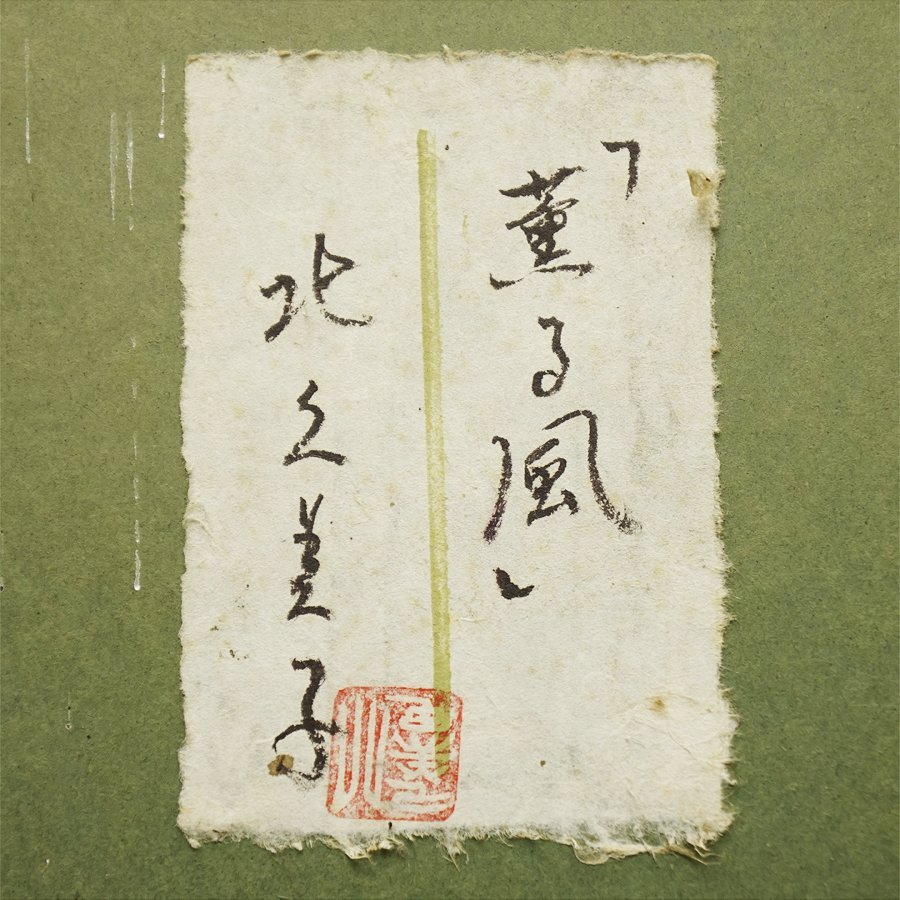 「薫る風」
北久美子